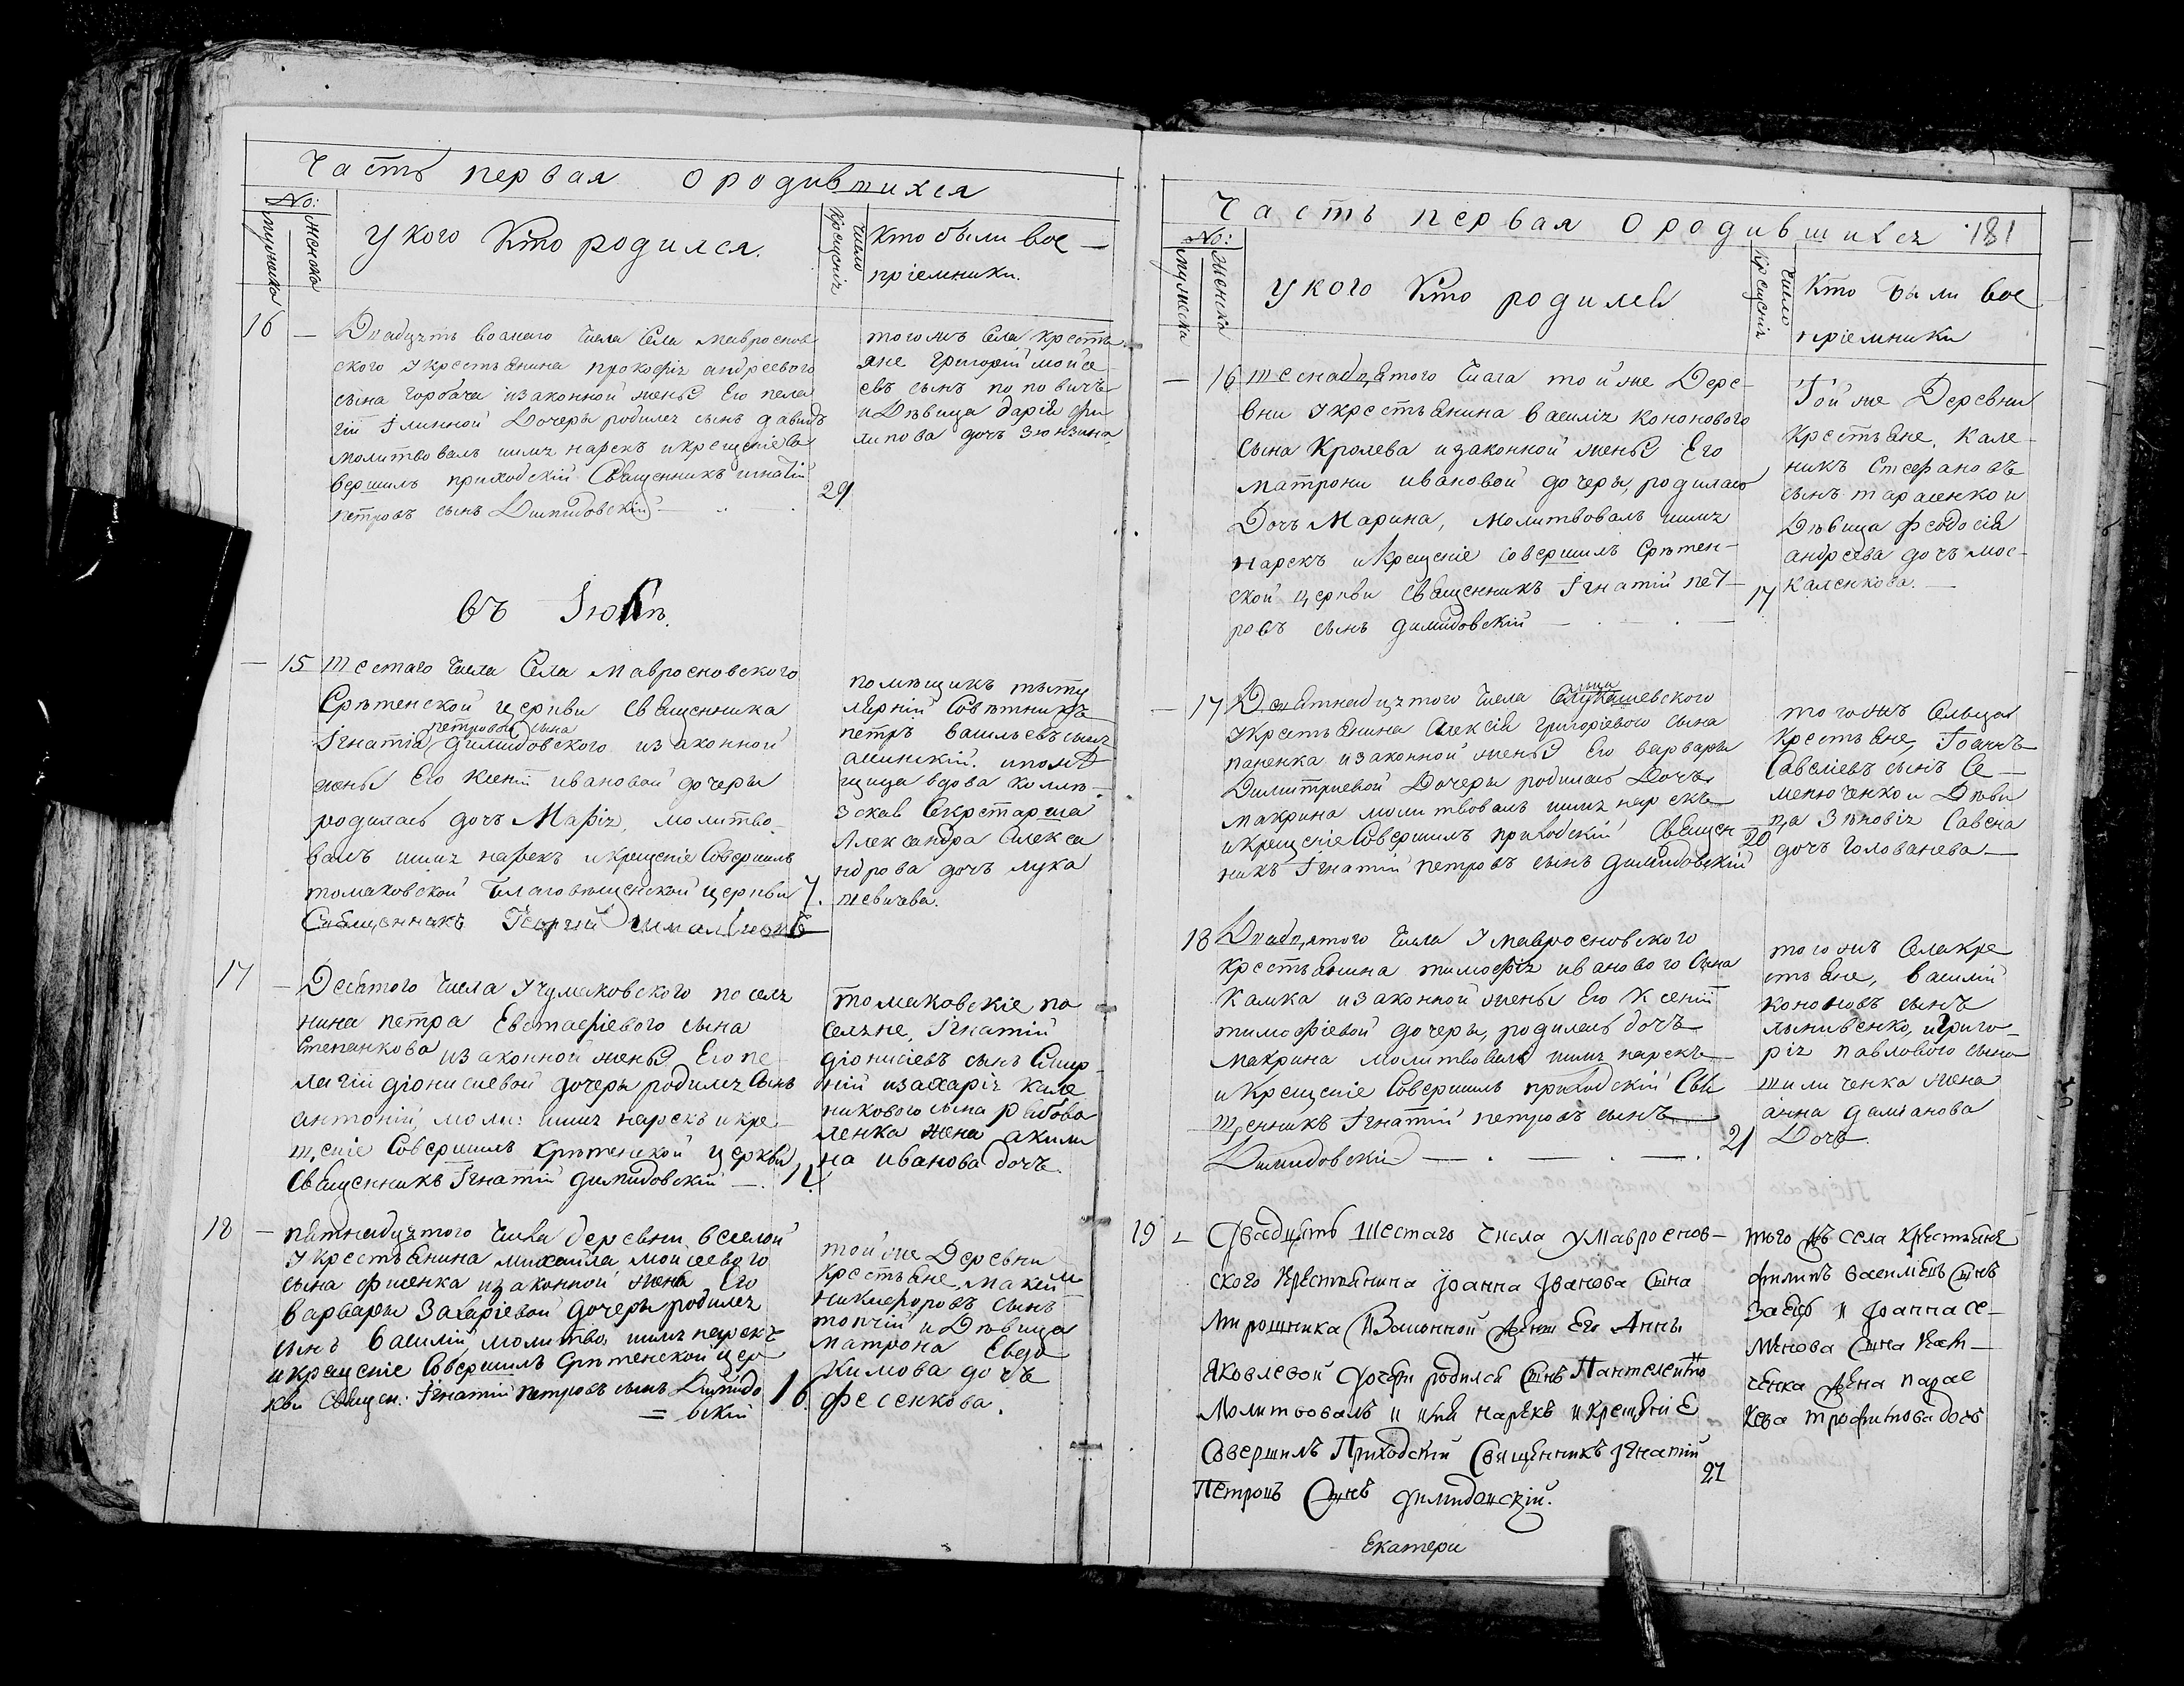 Часть первая о родившихся
№:
мужеска
женска
У кого Кто родился.
число
крещенія
Кто были вос-
пріемники.
16 —
Двадцять восмаго числа Села Мавроснов
ского У крестьянина прокофія андреевого
сына Горбача и законной жены Его пела
гіи Іліиной Дочеры родился сынъ давидъ
молитвовалъ имя нарекъ и крещеніе со
вершилъ приходскій Священникъ игнатій
петровъ сынъ Димидовскій
29
тогожъ Села Кресть
яне григорій мойсе
евъ сынъ поповичъ
и Дѣвица дарія фи
липова дочъ Зюнзина
въ Іюлѣ.
— 15 шестаго числа Села Мавросновского
Срѣтенской церкви священника
петрова сына
Ігнатія Димидовского и законной
жены Его Ксеніи ивановой дочеры
родилась дочъ Марія, молитво
валъ имя нарекъ и крещеніе Совершилъ
томаковской Благовѣщенской церкви
Священникъ Георгій
7.
помѣщикъ тыту
лярній Совѣтникъ
петръ васильевъ сынъ
и помѣ
щица вдова колѣ
зская Секретарша
Александра Алекса
ндрова дочъ лука
шевичева.
17 —
Десятого числа У чумаковского поселя
нина петра Евстафіевого сына
Степанкова и законной жены Его пе
лагіи діонисіевой дочеры родился Сынъ
антоній, моли: имя нарекъ и кре
щеніе Совершилъ Срѣтенской церкви
Священникъ Ігнатій Димидовскій —
томаковскіе по
селяне, Ігнатій
діонисіевъ сынъ Смир
ній и захарія кале
никового сына рябова
ленка жена акили
на иванова дочъ.
18 — пятнадцятого числа деревни веселой
У крестьянина михайла мойсеевого
сына фисенка и законной жены Его
варвары Захаріевой дочеры родился
сынъ василій, молитво, имя нарекъ
и крещеніе Совершилъ Срѣтенской цер
кви Священ: Ігнатій петровъ сынъ Димидо
= вскій
16
той же Деревни
Крестьяне, макси
никифоровъ сынъ
топчій и Дѣвица
матрона Евдо
кимова дочъ
фесенкова.
Часть первая О родившихся 181
№:
мужеска
женска
У кого Кто родился
число
крещенія
Кто были вос
пріемники
— 16 шеснадцятого числа той же Дере-
вни У крестьянина василія Кононового
сына Кролева и законной жены Его
матроны ивановой дочеры, родилась
Дочъ Марина, молитвовалъ имя
нарекъ и крещеніе совершилъ Срѣтен-
ской церкви Священникъ Ігнатій пет-
ровъ сынъ димидовскій
17
Той же Деревни
Крестьяне, Кале-
никъ Стефановъ
сынъ тараненко и
Дѣвица феодосія
андреева дочъ мос-
каленкова. —
— 17 Девятнадцятого числа
Крестьянина Алексія григоріевого сына
паненка и законной жены Его варвары
Димитріевой Дочеры родилась Дочъ
макрина молитвовалъ имя нарекъ
и крещеніе Совершилъ приходскій Священ
никъ Ігнатій петровъ сынъ димидовскій
20
тогожъ Сельца
Крестьяне, Іоаннъ
Савеліевъ сынъ Се —
менюченко и Дѣви
ца Зѣновія Савена
дочъ Голованева —
18 Двадцятого числа У мавросновского
крестьянина тимофія иванового сына
Камка и законной жены Его Ксеніи
тимофіевой дочеры, родилась дочъ
макрина молитвовалъ имя нарекъ
и Крещеніе Совершилъ приходскій Свя
щенникъ Ігнатій петровъ сынъ
Димидовскій — . — . — .
21
тогожъ Села кре
стьяне, василій
кононовъ сынъ
и григо-
рія павлового сына
жена
анна даміанова
Дочъ.
19 — Двадцять шестаго числа У Мавроснов —
ского Крестьянина Іоанна Іванова Сына
Мирошника и Законной Жены Его Анны
Яковлевой Дочери родился Сынъ Пантелеимо
Молитвовалъ и имя нарекъ и крещеніе
Совершилъ Приходскій Священникъ Ігнатій
Петровъ Сынъ Димидовскій.
27
того жъ села крестьяне
филипъ васильевъ сынъ
и Іоанна се-
менова сына
ченка жена парас
кева трофимова дочь
Екатери